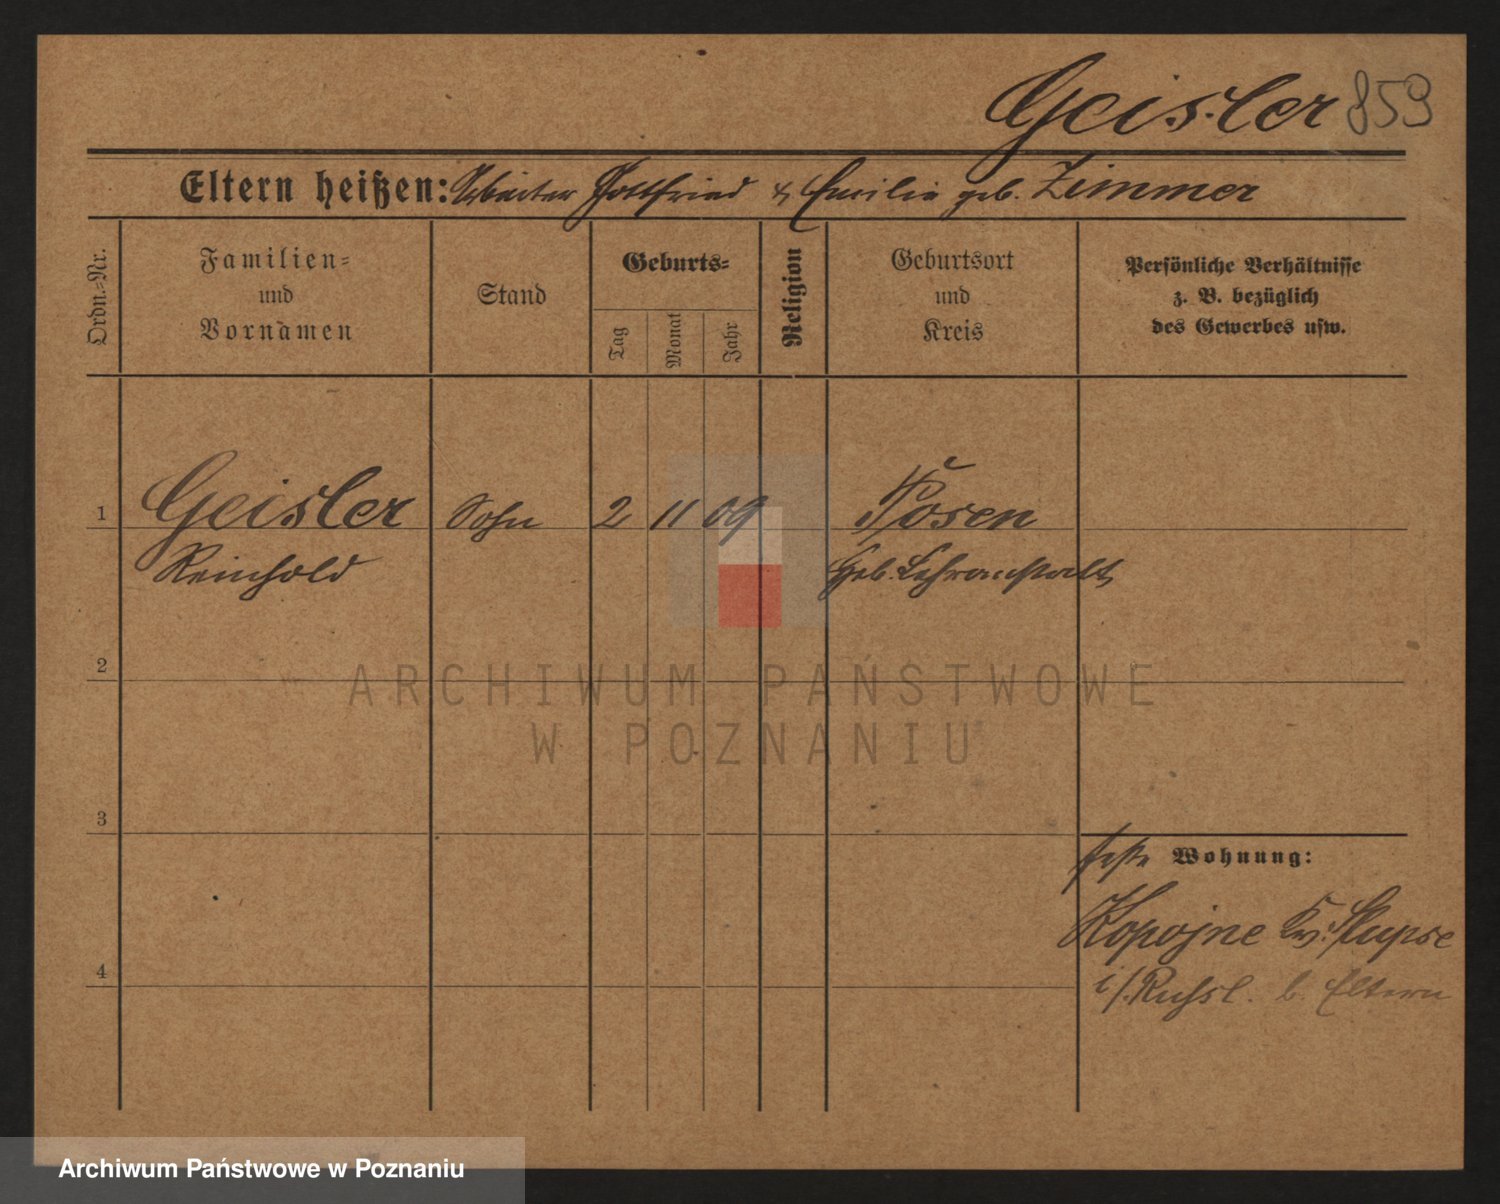 Geisler 859
Eltern heißen: Arbeiter Gottfried & Emilie geb. Zimmer
Ordn.=Nr.
Familien=
und
Vornamen
Stand
Geburts=
Tag
Monat
Jahr
Religion
Geburtsort
und
Kreis
Persönliche Verhältnisse
z. B. bezüglich
des Gewerbes usw.
1 Geisler Sohn 2 11 09 Posen
Reinhold Heb. Lehranstalt
2
ARCHIWUM PAŃSTWOWE
W POZNANIU
3
feste Wohnung:
Kopojne Kr. Slupse
4
i/Russl. b. Eltern
Archiwum Państwowe w Poznaniu